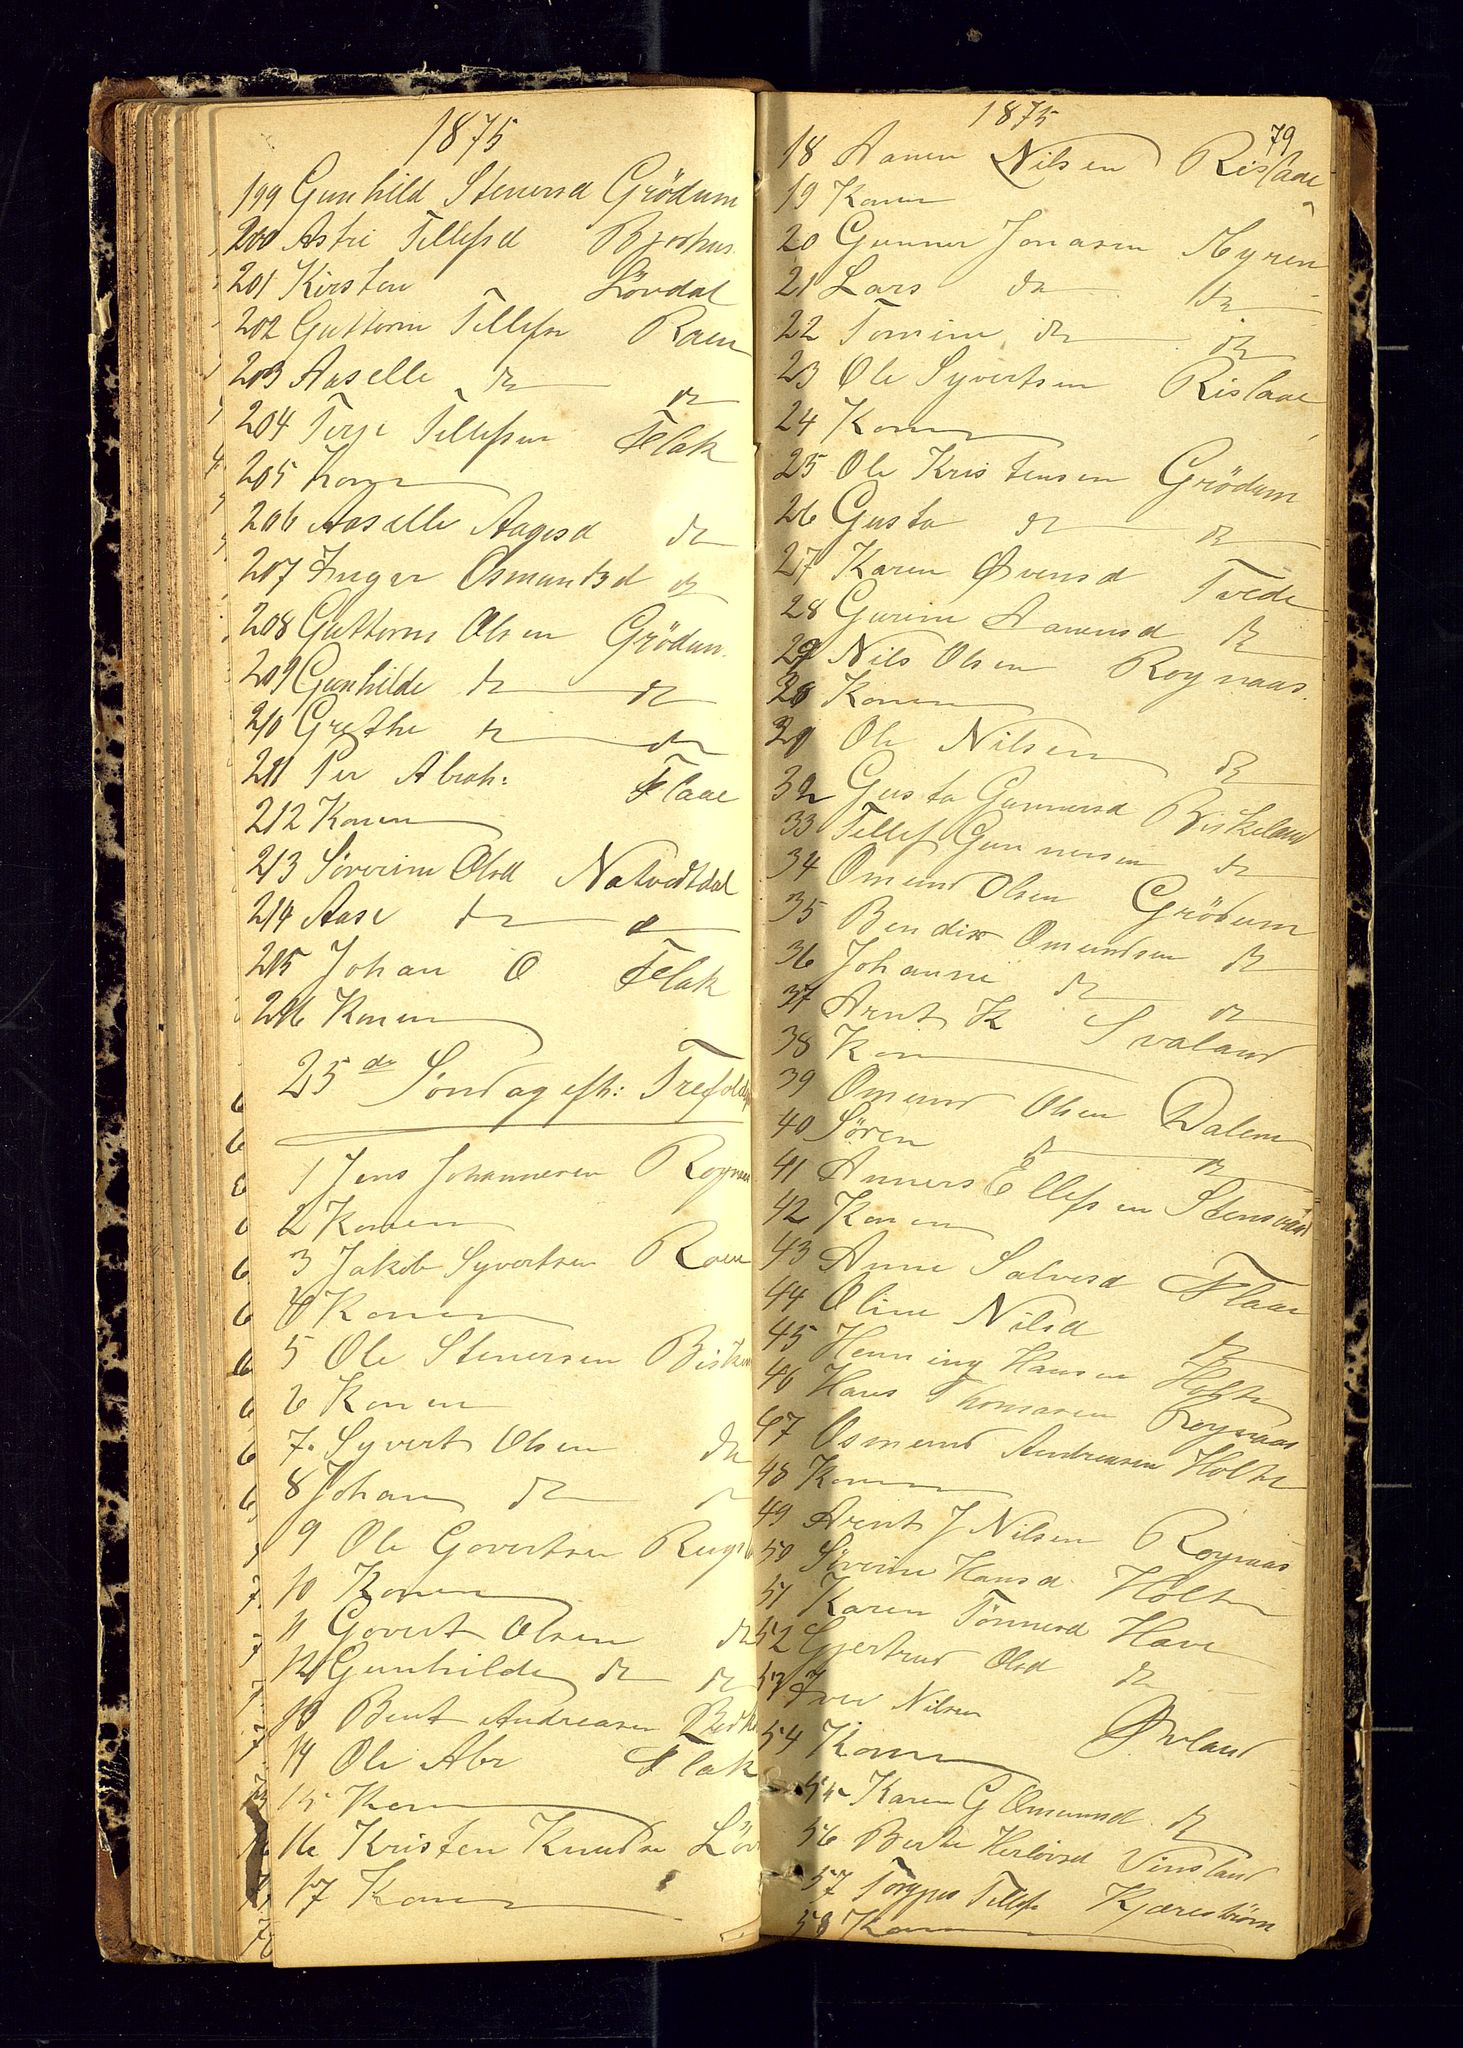 1875
199 Gunhild Stenersd Grödum
200 Astri Tellefsd Bjorhus
201 Kirsten Lövdal
202 Guttorm Tellefsn Roen
203 Aaselle do do
204 Terje Tellefsen Flak
205 Konen
206 Aaselle Aagesd do
207 Ingar Osmundsd do
208 Guttorm Olsen Grödum
209 Gunhilde do do
210 Grethe do do
211 Per Abrah: Flaae
212 Konen
213 Söverine Olsd Natvedtdal
214 Aase do do
215 Johan O Flak
216 Konen
25de Søndag efth: Trefold
1 Jens Johannesen Roynaas
2 Konen
3 Jakob Syvertsen Roen
4 Konen
5 Ole Stenersen Birke
6 Konen
7. Syvert Olsen do
8 Johan do
9 Ole Govertsen
10 Konen
11 Govert Olsen do
12 Gunhilde do do
13 Bent Andreasen Birke
14 Ole Abr Flak
15 Konen
16 Kristen Knudsn Löv
17 Konen
1875
79
18 Aanen Nilsen Rislaae
19 Konen
20 Gunner Jonasen Myren
21 Lars do do
22 Tomine do do
23 Ole Syvertsen Rislaae
24 Konen
25 Ole Kristensen Grödum
26 Gusta do do
27 Karen Øvensd Tvede
28 Gurine Aanensd do
29 Nils Olsen Roynaas
30 Konen
31 Ole Nilsen do
32 Gusta Gunnersd Birkeland
33 Tellef Gunnersen do
34 Omund Olsen Grödum
35 Bendix Omundsen do
36 Johanne do do
37 Arnt K Svaland
38 Kon
39 Omund Olsen Dalene
40 Sören do do
41 Anners Ellefsen Stensvand
42 Konen
43 Anne Salvesd Flaae
44 Oline Nilsd do
45 Henning Hansen Holte
46 Hans Thomasen Roynaas
47 Osmund Andreasen Holte
48 Konen
49 Arnt J Nilsen Roynaas
50 Söverine Hansd Holte
51 Karen Tönnesd Have
52 Gjertrud Olsd do
53 Iver Nilsen Øvland
54 Konen
55 Karen G Omunsd do
56 Berte Herlovsd Vinsland
57 Torjus Tellefs Kjærestrøm
58 Konen